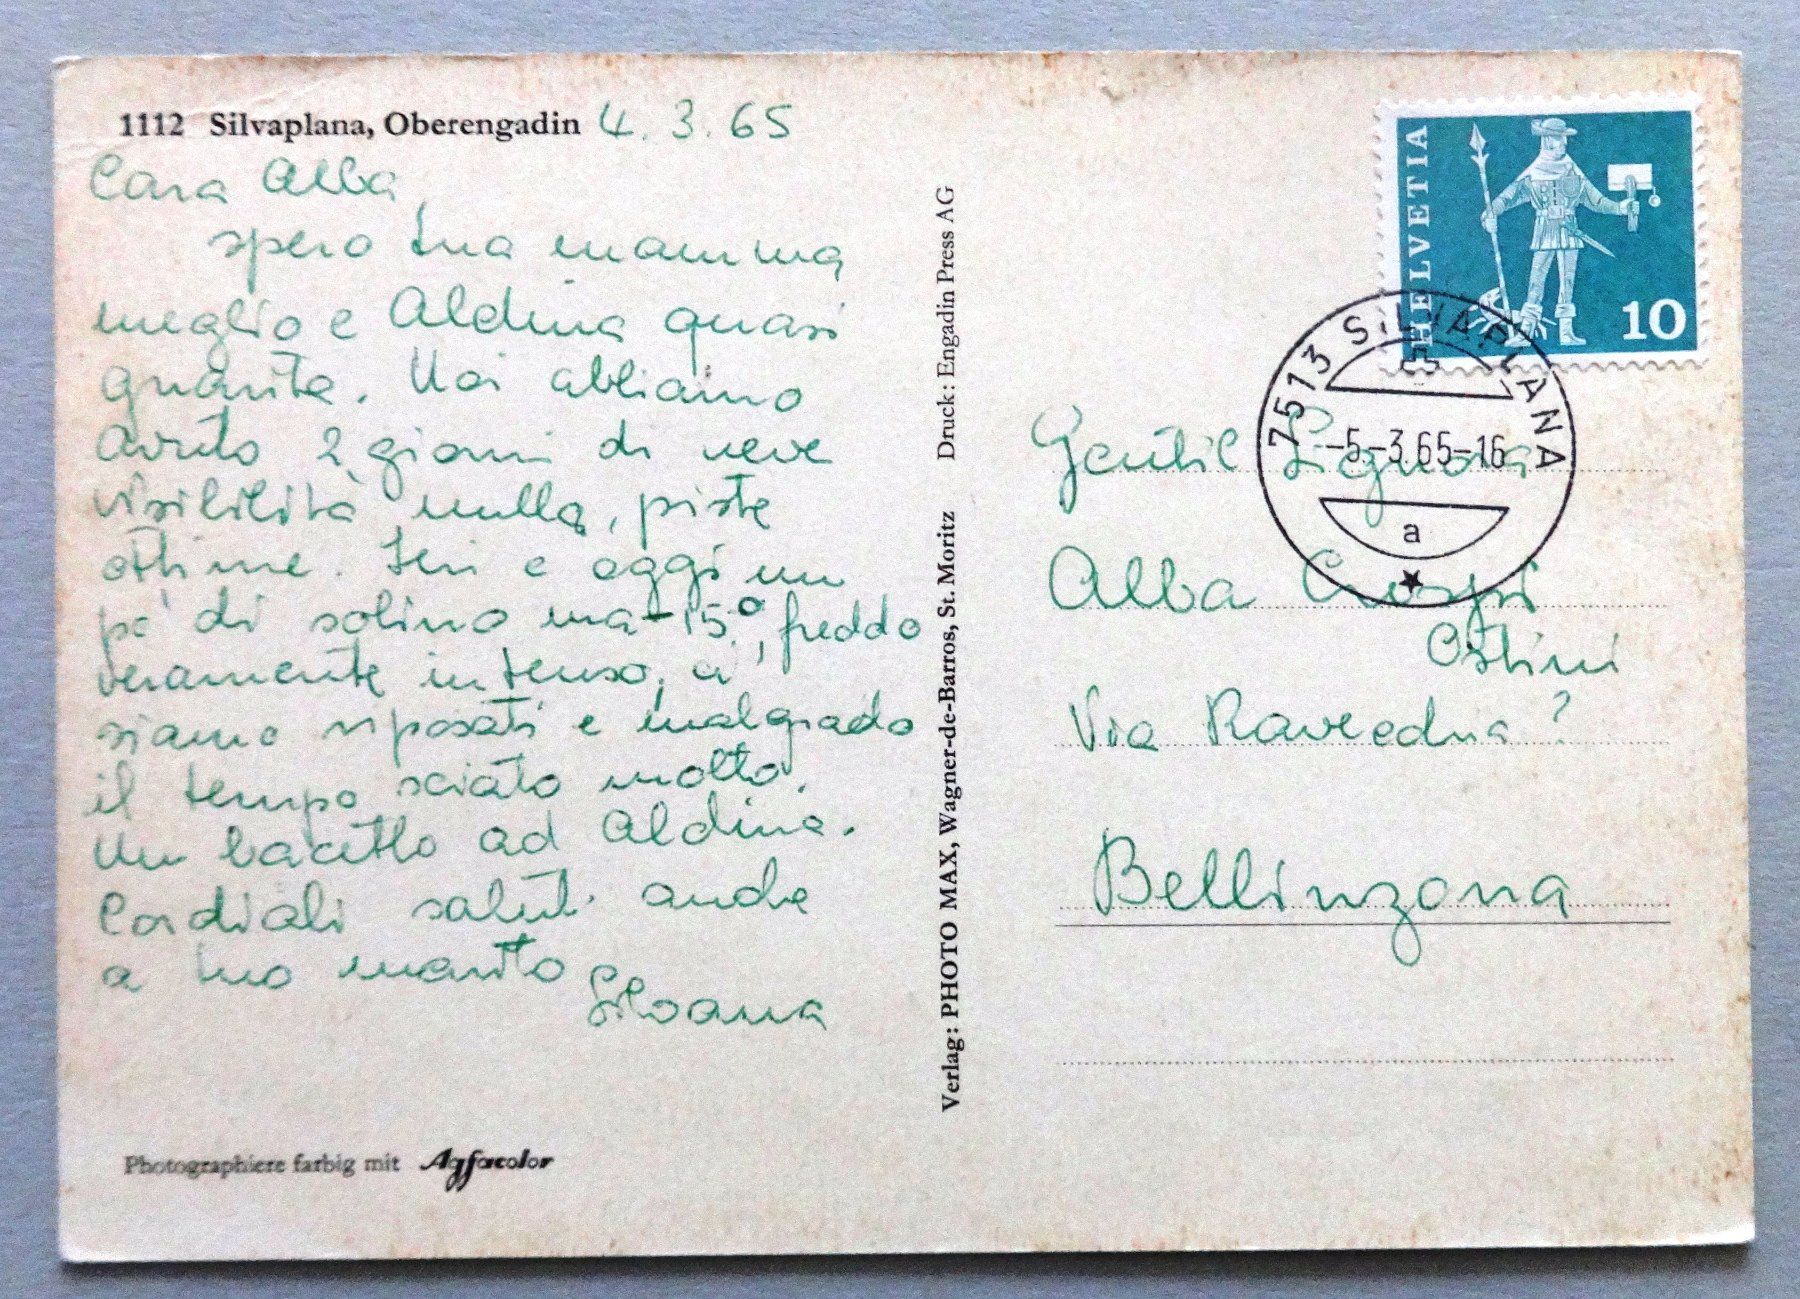 1112 Silvaplana, Oberengadin 4. 3. 65
Cara Alba,
spero tua mamma
meglio e Aldina quasi
guarita. Noi abbiamo
avuto 2 giorni di neve
visibilità nulla, piste
ottime. Ieri e oggi un
po' di solino ma -15°, freddo
veramente intenso, ci
siamo riposati e malgrado
il tempo sciato molto.
Un bacetto ad Aldina.
Cordiali saluti anche
a tuo marito
Silvana
Photographiere farbig mit Agfacolor
Verlag: PHOTO MAX, Wagner-de-Barros, St. Moritz Druck: Engadin Press AG
HELVETIA
10
7513 SILVAPLANA
-5.-3.65-16
a
Gentil Signora
Alba Crespi
Ostini
Via Ravecchia?
Bellinzona